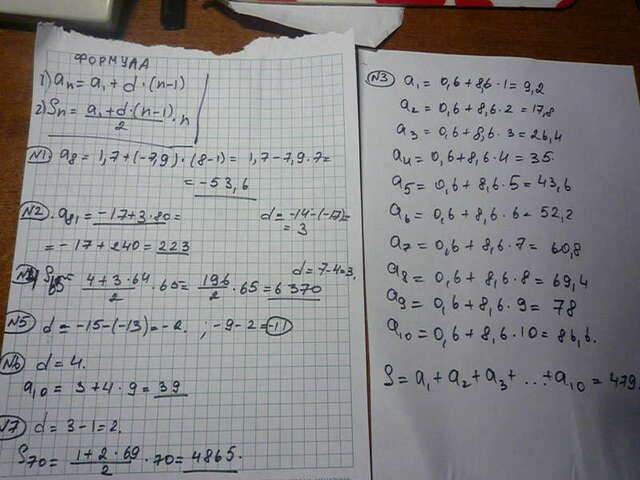 ФОРМУЛА
1) aₙ = a₁ + d · (n-1)
2) Sₙ = (a₁ + d · (n-1))/2 · n
N1 a₈ = 1,7 + (-7,9) · (8-1) = 1,7 - 7,9 · 7 =
= -53,6
N2 a₈₁ = -17 + 3 · 80 =
d = -14 - (-17) =
= 3
= -17 + 240 = 223
d = 7-4 = 3.
S₆₅ = (4 + 3 · 64)/2 · 65 = 196/2 · 65 = 6370
N5 d = -15 - (-13) = -2. ; -9 - 2 = -11
N6 d = 4.
a₁₀ = 3 + 4 · 9 = 39
N7 d = 3 - 1 = 2.
S₇₀ = (1 + 2 · 69)/2 · 70 = 4865.
N3 a₁ = 0,6 + 8,6 · 1 = 9,2
a₂ = 0,6 + 8,6 · 2 = 17,8
a₃ = 0,6 + 8,6 · 3 = 26,4
a₄ = 0,6 + 8,6 · 4 = 35
a₅ = 0,6 + 8,6 · 5 = 43,6
a₆ = 0,6 + 8,6 · 6 = 52,2
a₇ = 0,6 + 8,6 · 7 = 60,8
a₈ = 0,6 + 8,6 · 8 = 69,4
a₉ = 0,6 + 8,6 · 9 = 78
a₁₀ = 0,6 + 8,6 · 10 = 86,6.
S = a₁ + a₂ + a₃ + ... + a₁₀ = 479.